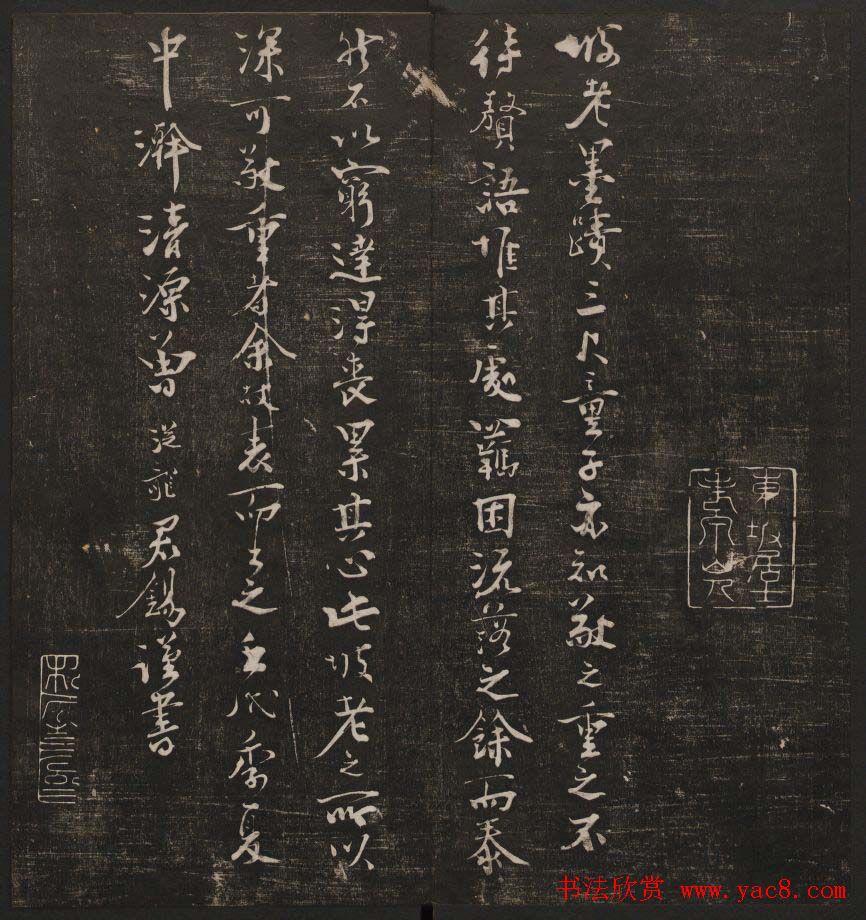 坡老墨蹟三尺童子亦知敬之重之不
待贅語惟其處羈困流落之餘而泰
然不以窮達得喪累其心此坡老之所以
深可敬重者余故表而出之壬戌季夏
中澣清源曾從龍君錫謹書
東坡居士
书法欣赏 www.yac8.com